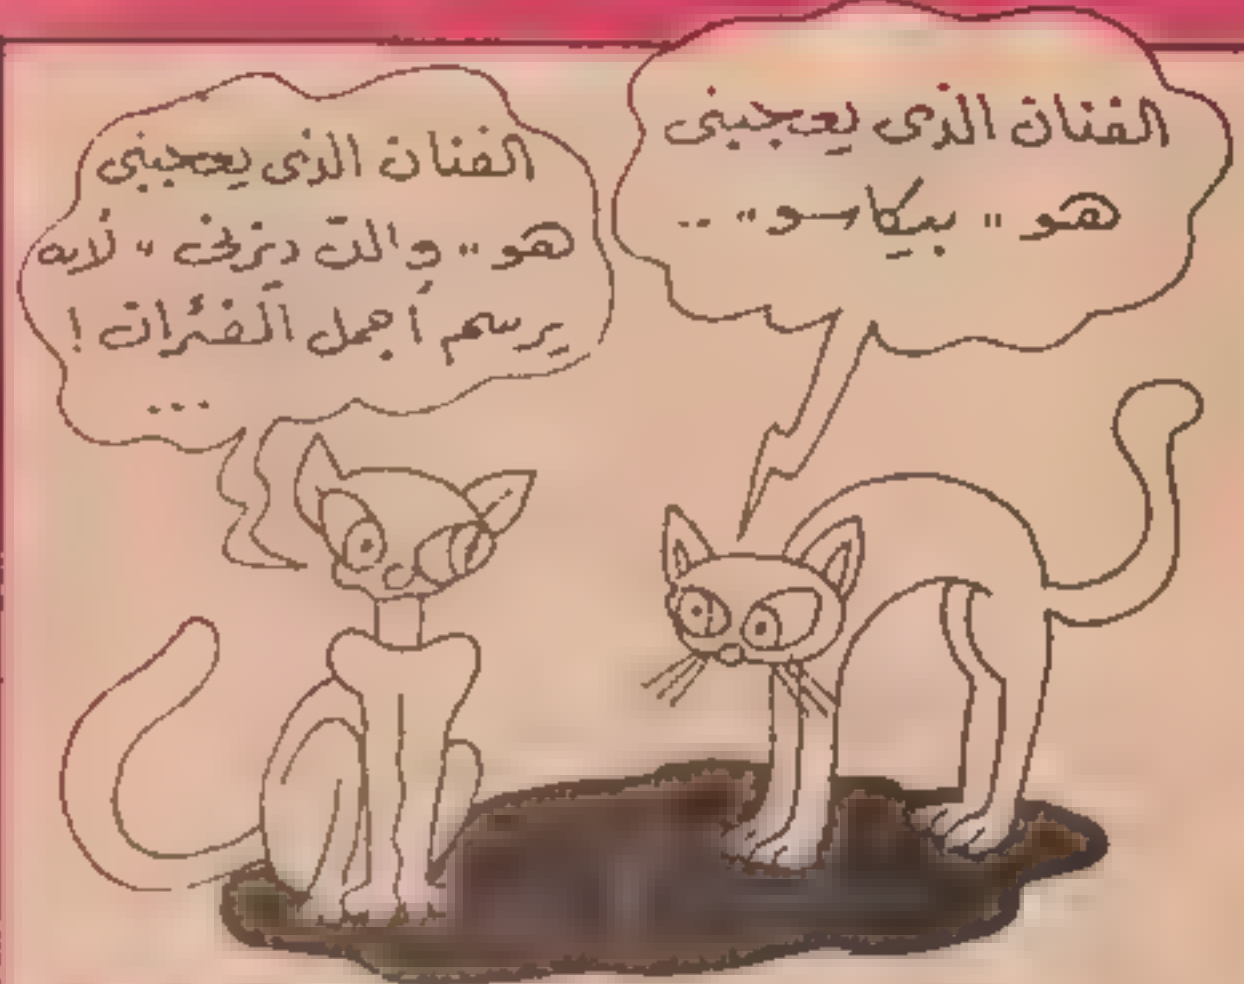 الفنان الذى يعجبنى
هو " بيكاسو " ..
الفنان الذى يعجبنى
هو " والت ديزنى " لأنه
يرسم أجمل الفئران !
...